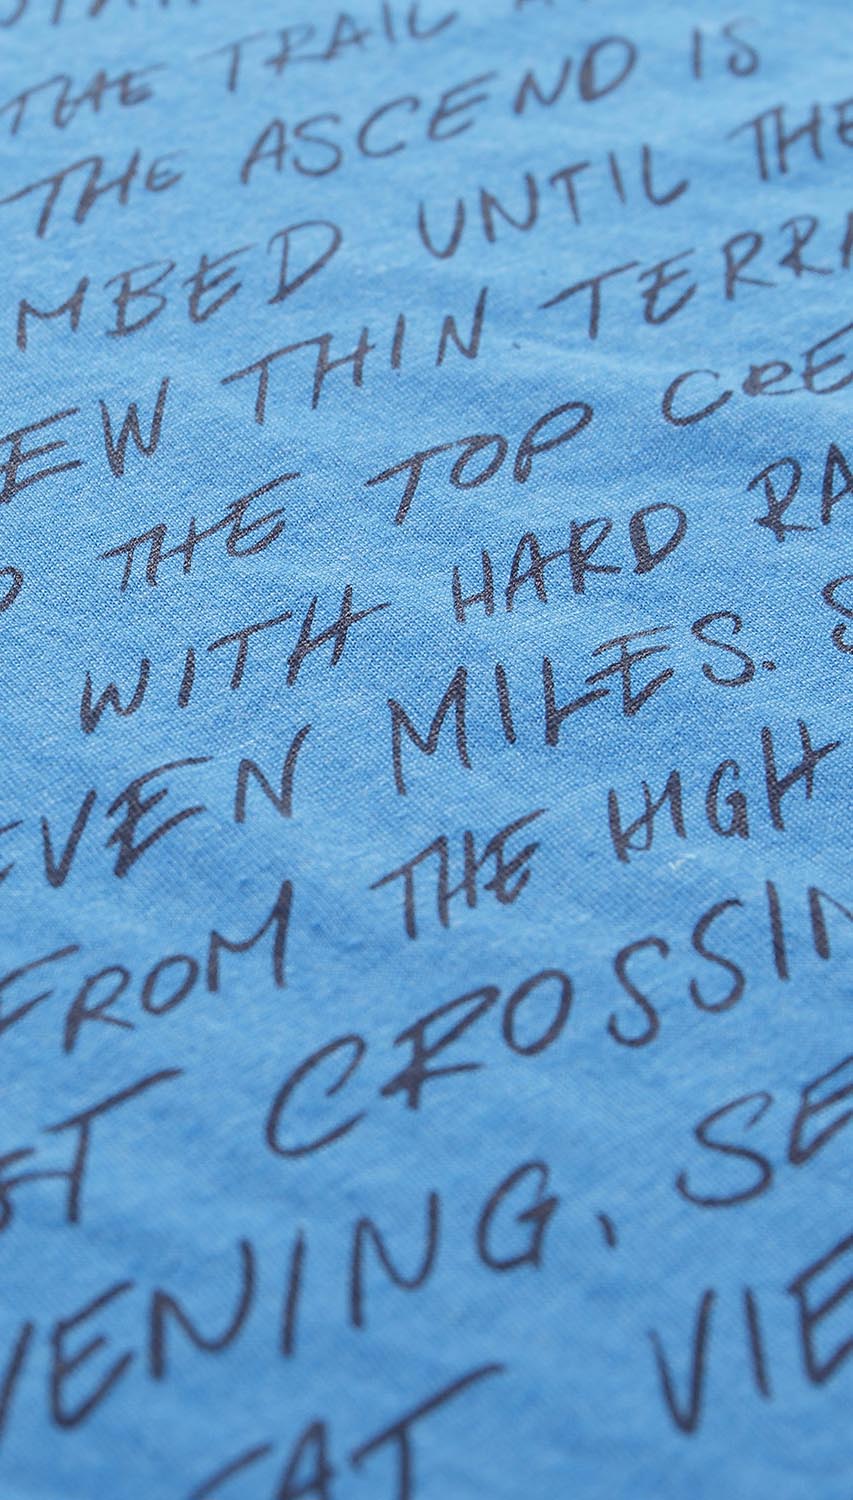 THE TRAIL
THE ASCEND IS
MBED UNTIL THE
EW THIN TERRA
THE TOP CREE
WITH HARD RA
EVEN MILES. S
FROM THE HIGH
ET CROSSIN
VENING, SE
EAT VIE